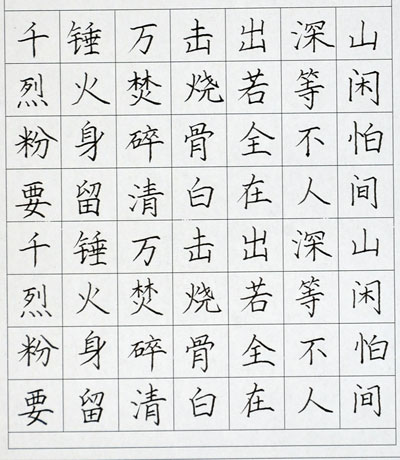 千锤万击出深山
烈火焚烧若等闲
粉身碎骨全不怕
要留清白在人间
千锤万击出深山
烈火焚烧若等闲
粉身碎骨全不怕
要留清白在人间